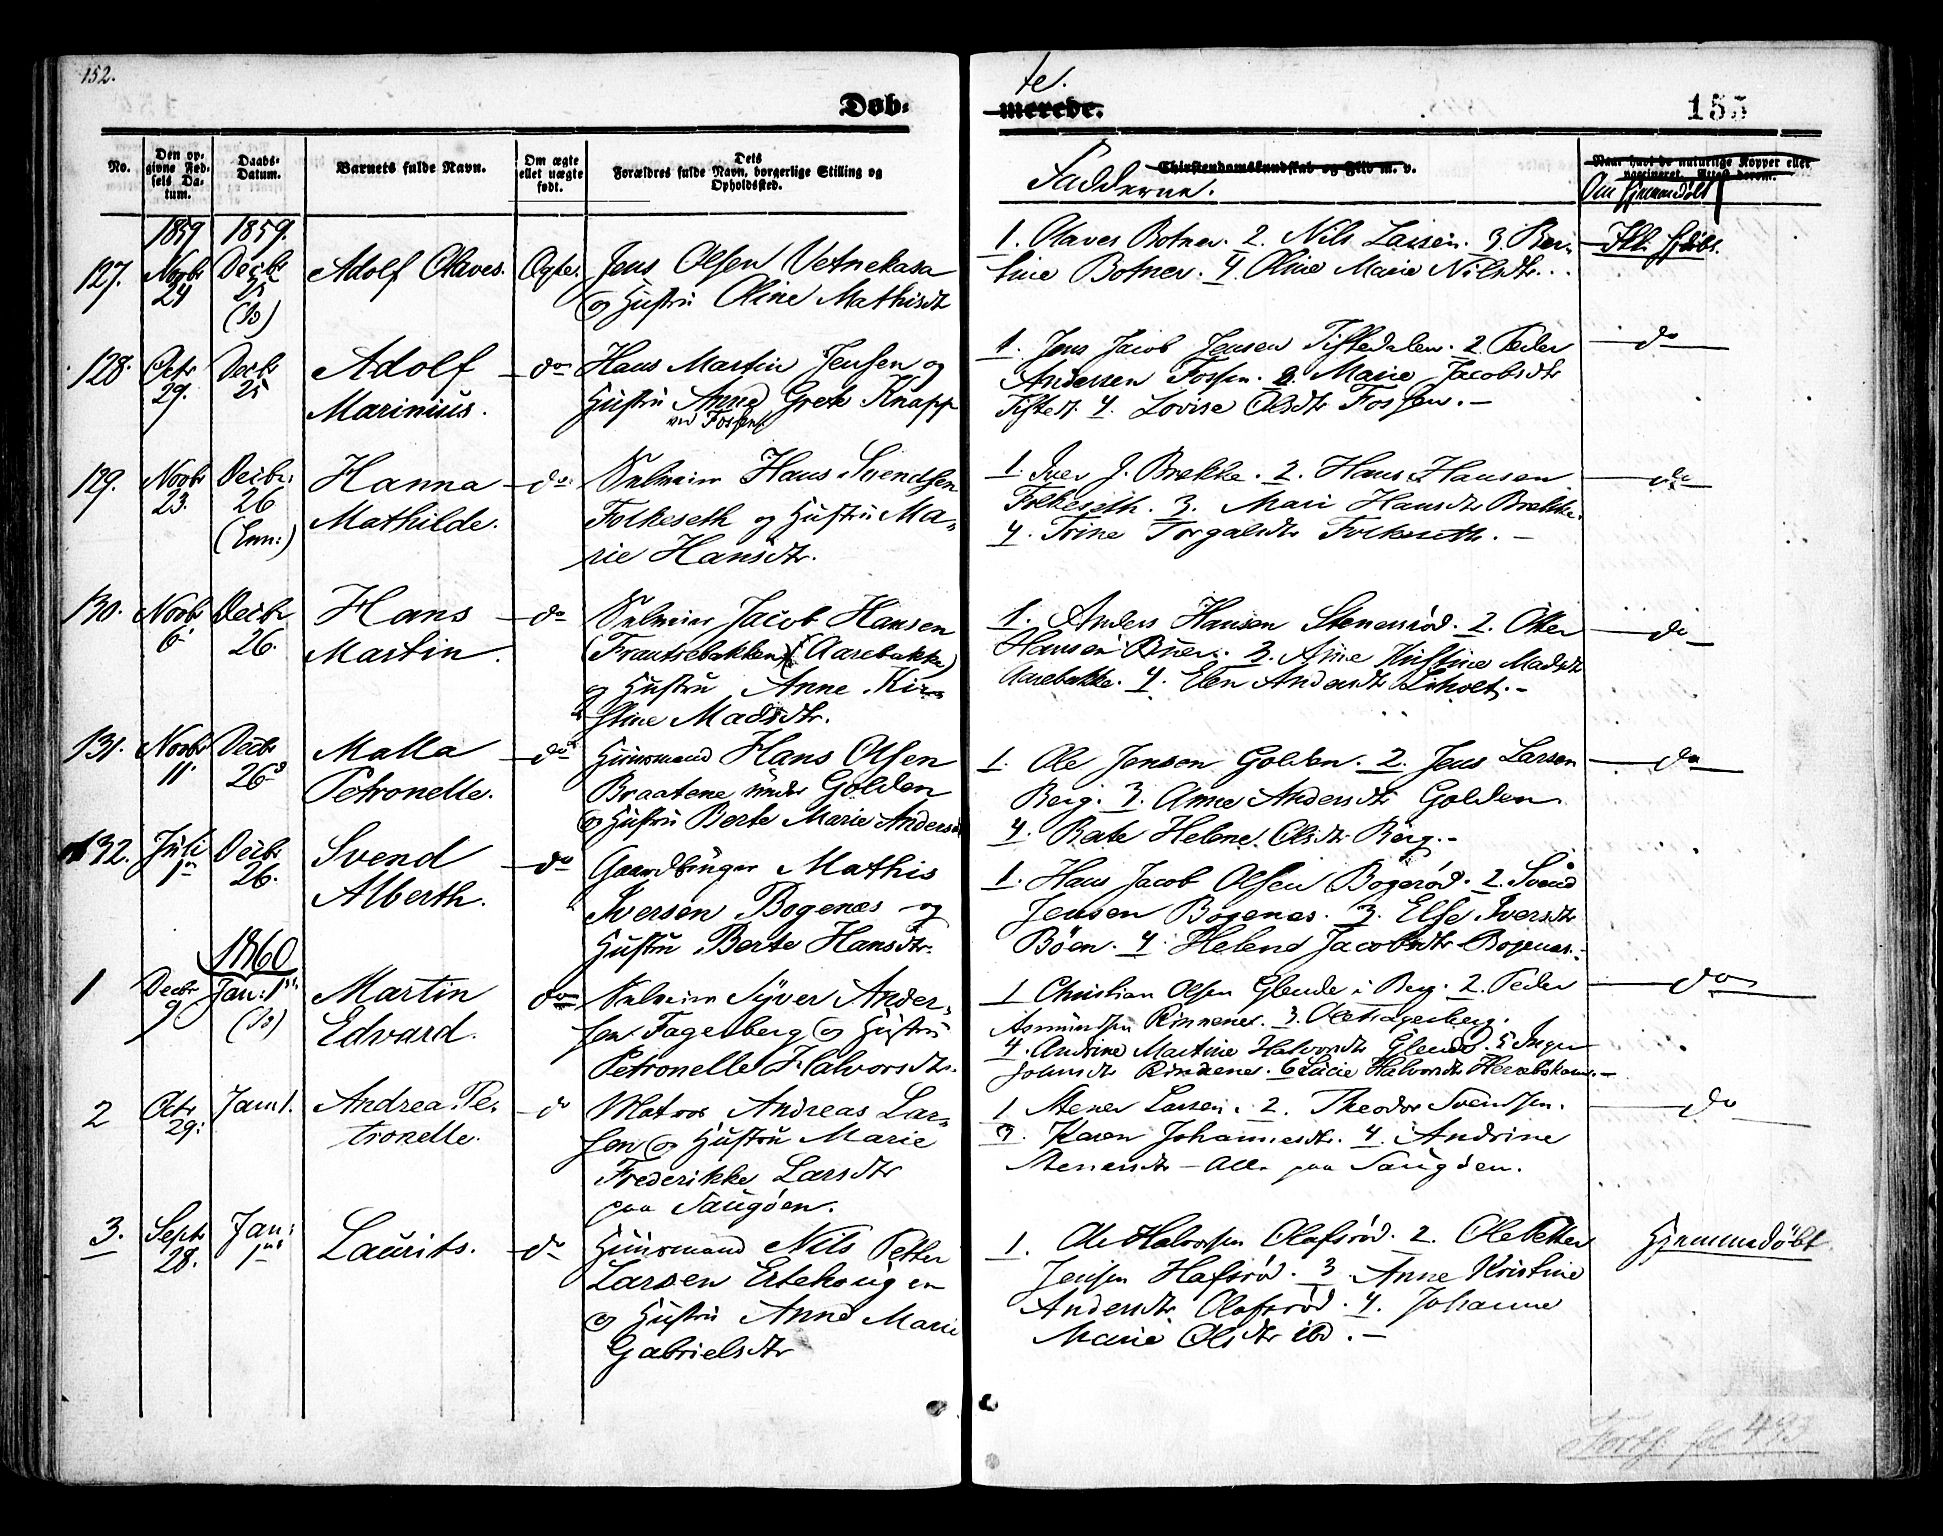 152.
Døb-
te.
merede.
155
No.
Den op-
givne Fød-
sels Da-
tum.
Daabs-
Datum.
Barnets fulde Navn.
Om ægte
eller uægte
født.
Dets
Forældres fulde Navn, borgerlige Stilling og
Opholdssted.
Christendomskundskab og Flid m. v.
Fadderne.
Naar havt de naturlige Kopper eller
vaccineret. Attest derom.
Om hjemmedöbt
1859 1859.
127. Novbr 24 Decbr 25 (Is) Adolf Olaves. Ægte. Jens Olsen Vetnekasa
og Hustru Oline Mathisdtr
1. Olaves Botner. 2. Nils Larsen. 3. Ber-
tine Botner. 4. Oline Marie Nilsdtr.
128. Octr 29. Decbr 25 Adolf
Marinius.
do Hans Martin Jensen og
Hustru Anne Grete Knapp
ved Fossen
1. Jens Jacob Jensen Tistedalen. 2. Peder
Andersen Fossen. 3. Marie Jacobsdtr
Tisted. 4. Lovise Olsdtr Fossen.-
do
129. Novbr 23. Decbr. 26 (Enn:) Hanna
Mathilde.
do Selveier Hans Svendsen
Folkeseth og Hustru Ma-
rie Hansdtr.
1. Iver J. Brekke. 2. Hans Hansen
Folkeseth. 3. Mari Hansdtr Brekke.
4. Trine Torgalsdtr Folkeseth.-
do
130. Novbr 6 Decbr 26. Hans
Martin.
do Selveier Jacob Hansen
(Aarebakke)
og Hustru Anne Kir-
stine Madsdtr.
1. Anders Hansen Stenersrød. 2. Otter
Hansen Buer. 3. Anne Kirstine Madsdtr
Aarebakke. 4. Elen Andersdtr Liholt.-
do
131. Novbr 11. Decbr 26 Malla
Petronelle.
do Huusmand Hans Olsen
Braatene under Golden
og Hustru Berte Marie Andersd
1. Ole Jensen Golden. 2. Jens Larsen
Berg. 3. Anne Andersdtr Golden
4. Berte Helene Olsdtr Berg.-
do
132. Juli 1 Decbr 26. Svend
Alberth.
do Gaardbruger Mathis
Iversen Bogenæs og
Hustru Berte Hansdtr.
1. Hans Jacob Olsen Bøgerød. 2. Svend
Jensen Bogenæs. 3. Else Iversdtr
Böen. 4. Helene Jacobsdtr Bogenæs.
1860
1 Decbr 9 Jan: 1 (Is) Martin
Edvard.
do Selveier Syver Ander-
sen Fagerberg og Hustru
Petronelle Halvorsdtr.
1 Christian Olsen Glende i Berg. 2. Peder
Asmundsen Rinnenes. 3. Ole Fagerberg.
4. Andrine Martine Halvorsdtr Glende. 5 Inger
Johnsdtr Rinnenes. 6 Lucie Halvorsdtr
do
2 Octr 29. Jan 1. Andrea Pe-
tronelle.
do Matros Andreas Lar-
sen og Hustru Marie
Frederikke Larsdtr
paa Saugöen.
1 Stener Larsen. 2. Theodor Svendsen.
3. Karen Johannesdtr. 4. Andrine
Stenersdtr - alle paa Saugöen.
do
3. Septr 28. Jan: 1 Laurits. do Huusmand Nils Petter
Larsen Ertehougen
og Hustru Anne Marie
Gabrielsdtr
1. Ole Halvorsen Olafsrød. 2. Ole Petter
Jensen Hafsrød. 3. Anne Kristine
Andersdtr Olafsrød. 4. Johanne
Marie Olsdtr ibd.-
Hjemmedöbt
Forts. fol 493